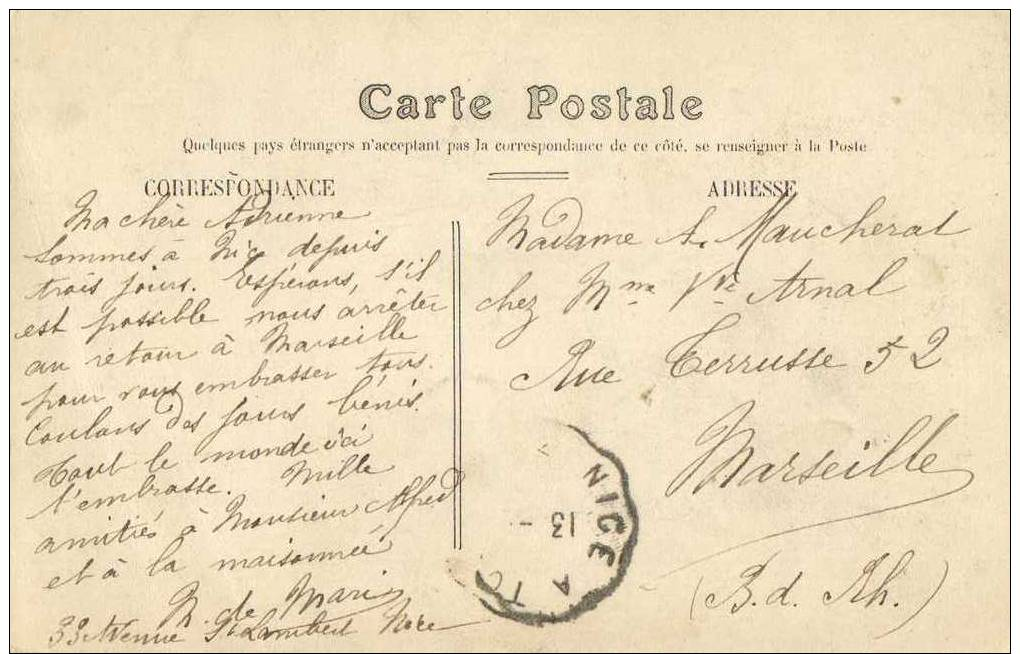 Carte Postale
Quelques pays étrangers n'acceptant pas la correspondance de ce côté, se renseigner à la Poste
CORRESPONDANCE
Ma chère Adrienne
Sommes à Nice depuis
trois jours. Espérons, s'il
est possible nous arrêter
au retour à Marseille
pour vous embrasser tous.
Coulons des jours bénis.
Tout le monde ici
t'embrasse. Mille
amitiés à Monsieur Alfred
et à la maisonnée
M. de Marin
33 Avenue St Lambert Nice
ADRESSE
Madame A. Maucherat
chez Mme Vve Arnal
Rue Terrusse 52
Marseille
(B. d. Rh.)
NICE A TO
13 -